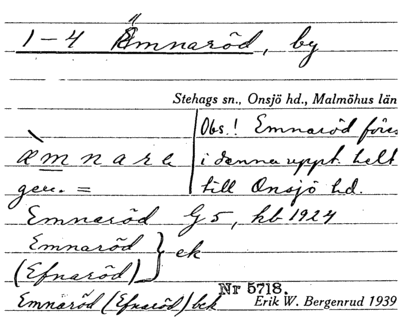 1-4 Ämnaröd, by
Stehags sn., Onsjö hd., Malmöhus län
Obs.! Emnaröd föres
æ̀mnare i denna uppt. helt
gen. = till Onsjö hd.
Emnaröd G5, hb 1924
Emnaröd } ek
(Efnaröd)
Emnaröd (Efnaröd) bek
Nr 5718. Erik W. Bergenrud 1939